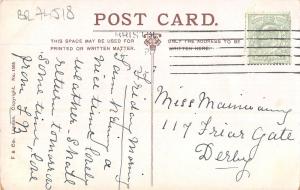 BR 74518
POST CARD.
THIS SPACE MAY BE USED FOR
PRINTED OR WRITTEN MATTER.
ONLY THE ADDRESS TO
BE WRITTEN HERE.
Friday Morning
Am having a
nice time, lovely
weather. Shall
return tomorrow
sometime, love
from
Miss Mainwaring
117 Friar Gate
Derby